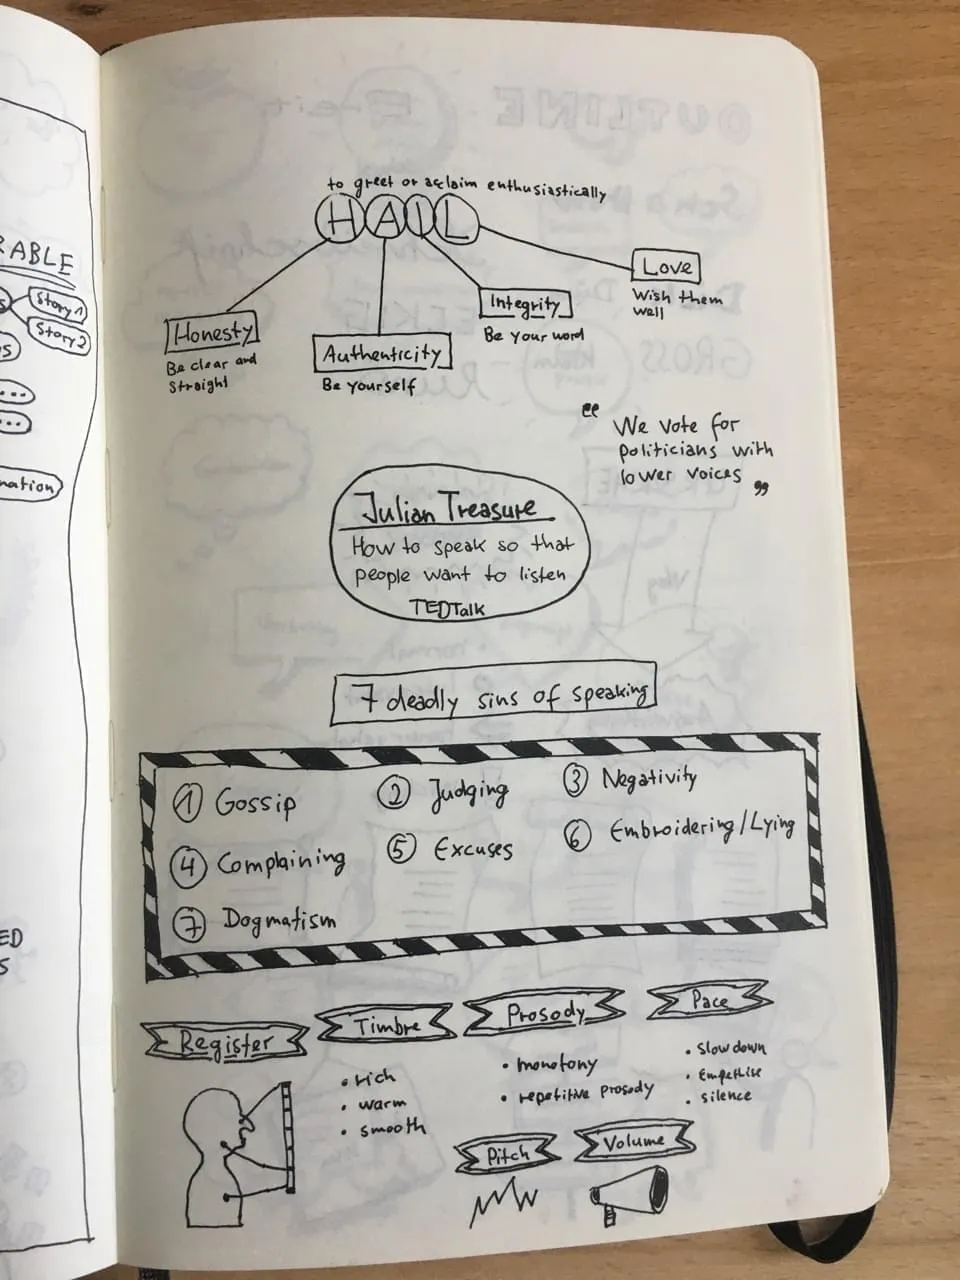 RABLE
Story 1
Story 2
nation
ED
S
to greet or acclaim enthusiastically
HAIL
Honesty
Be clear and
straight
Authenticity
Be yourself
Integrity
Be your word
Love
Wish them
well
"We vote for
politicians with
lower voices"
Julian Treasure
How to speak so that
people want to listen
TEDTalk
7 deadly sins of speaking
1 Gossip
2 Judging
3 Negativity
4 Complaining
5 Excuses
6 Embroidering/Lying
7 Dogmatism
Register
Timbre
• rich
• warm
• smooth
Prosody
• monotony
• repetitive prosody
Pace
• slow down
• silence
Pitch
Volume